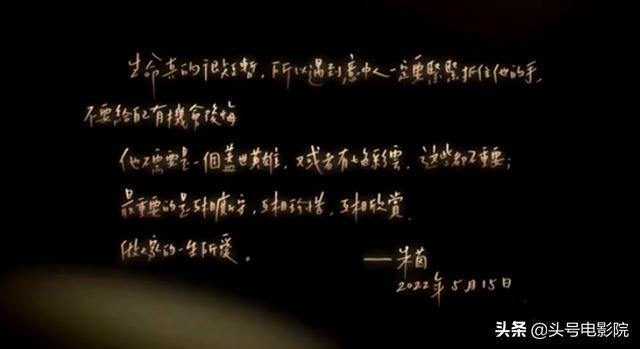 生命真的很短暫，所以遇到意中人一定要緊緊抓住他的手，
不要給自己有機會後悔
他不需要是一個蓋世英雄，又或者有七色彩雲，這些都不重要；
最重要的是互相廝守，互相珍惜，互相欣賞，
做大家的一生所愛。
——朱茵
2022年5月15日
头条 @头号电影院